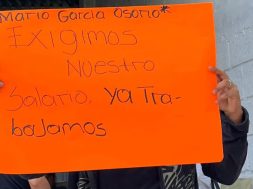 Mario García Osorio*
Exigimos
Nuestro
Salario, ya Tra-
bajamos